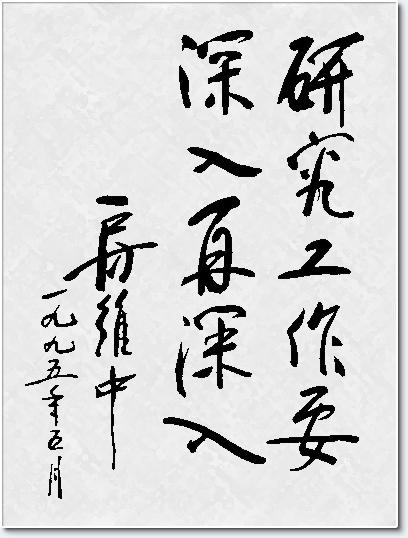 研究工作要
深入再深入
房维中
一九九五年五月